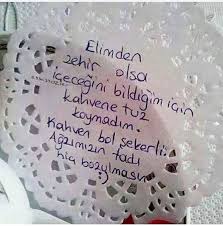 Elimden
zehir olsa
içeceğini bildiğim için
kahvene tuz
koymadım.
Kahven bol şekerli.
Ağzımızın tadı
hiç bozulmasın
:)